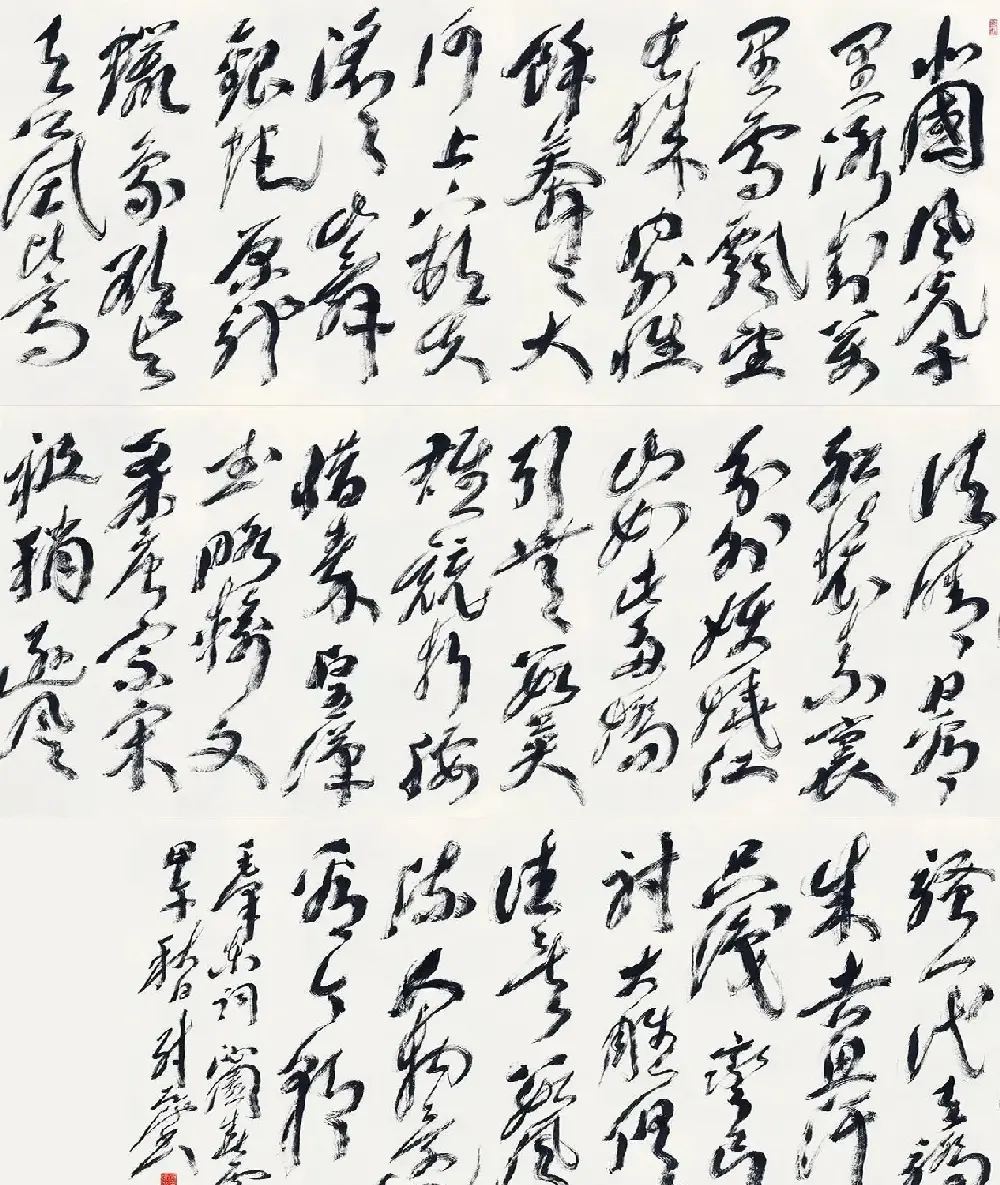 北國風光千
里冰封萬
里雪飄望
長城內外惟
餘莽莽大
河上下頓失
滔滔山舞
銀蛇原馳
蠟象欲与
天公試比高
須晴日看
紅裝素裹
分外妖嬈江
山如此多嬌
引無數英
雄競折腰
惜秦皇漢
武略輸文
采唐宗宋
祖稍遜風
騷一代天驕
成吉思汗
只識彎弓
射大雕俱
往矣數風
流人物還
看今朝
毛澤東詞沁園春雪
甲午秋日